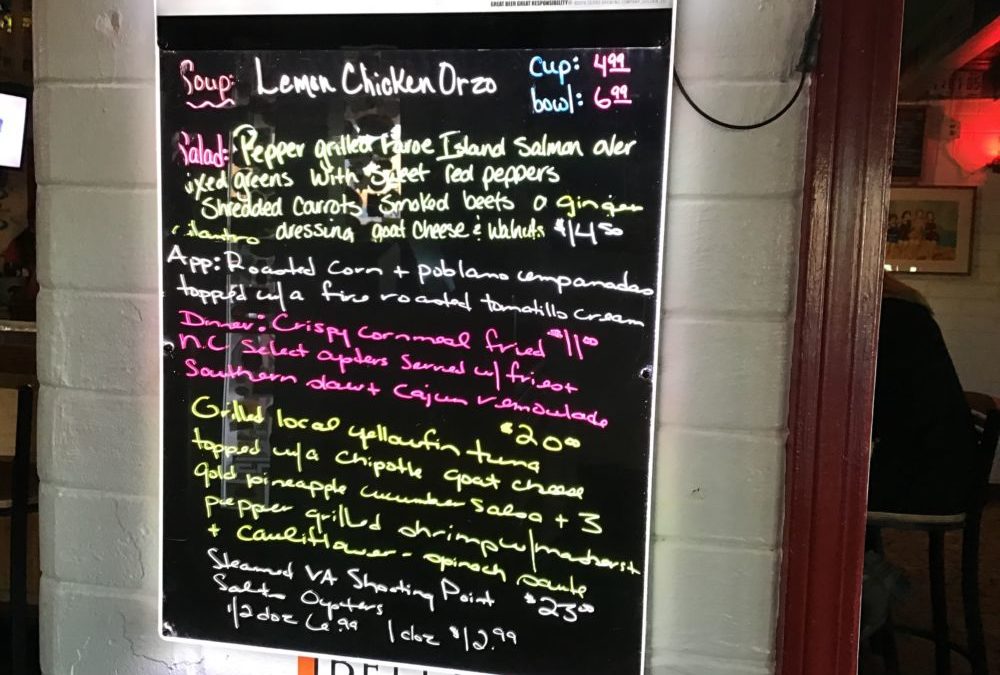 GREAT BEER GREAT RESPONSIBILITY
Soup: Lemon Chicken Orzo
cup: 4.99
bowl: 6.99
Salad: Pepper grilled Faroe Island Salmon over
ixed greens with sweet red peppers
Shredded Carrots Smoked beets a ginger
cilantro dressing goat cheese & walnuts $14.50
App: Roasted Corn + poblano empanadas
topped w/a fire roasted tomatillo cream
Dinner: Crispy Cornmeal fried $11.00
N.C. Select oysters Served w/ fries +
Southern slaw + Cajun remoulade
$20.00
Grilled local yellowfin tuna
topped w/a Chipotle goat cheese
gold pineapple cucumber Salsa + 3
pepper grilled shrimp w/
+ Cauliflower - spinach saute
$23.00
Steamed VA Shooting Point
Salts Oysters
1/2 doz 6.99 1 doz $12.99